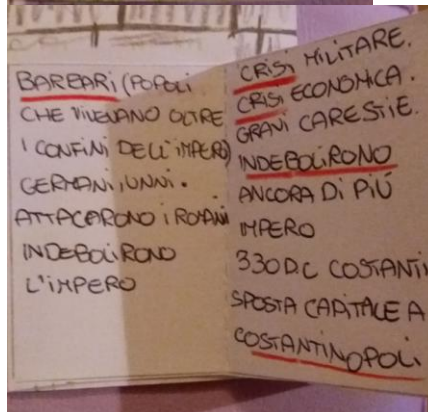 BARBARI (POPOLI
CHE VIVEVANO OLTRE
I CONFINI DELL'IMPERO)
GERMANI, UNNI.
ATTACCARONO I ROMANI
INDEBOLIRONO
L'IMPERO
CRISI MILITARE.
CRISI ECONOMICA.
GRAVI CARESTIE.
INDEBOLIRONO
ANCORA DI PIÚ
IMPERO
330 D.C COSTANTI
SPOSTA CAPITALE A
COSTANTINOPOLI